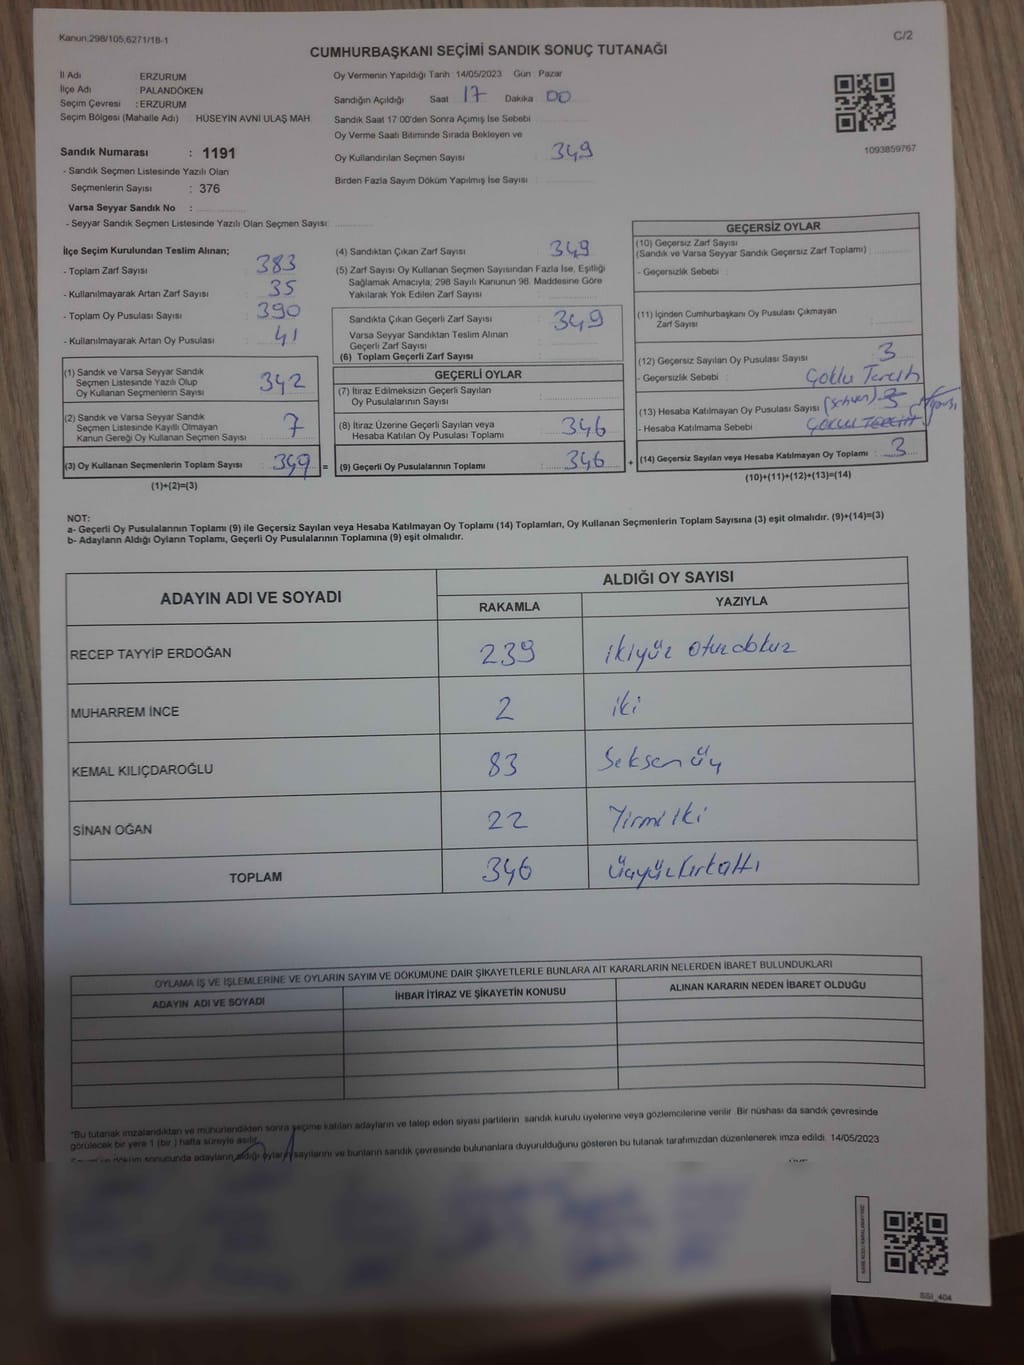 Kanun.298/105,6271/18-1
C/2
CUMHURBAŞKANI SEÇİMİ SANDIK SONUÇ TUTANAĞI
İl Adı : ERZURUM
İlçe Adı : PALANDÖKEN
Seçim Çevresi : ERZURUM
Seçim Bölgesi (Mahalle Adı) : HÜSEYİN AVNİ ULAŞ MAH
Sandık Numarası : 1191
- Sandık Seçmen Listesinde Yazılı Olan
Seçmenlerin Sayısı : 376
Varsa Seyyar Sandık No :
- Seyyar Sandık Seçmen Listesinde Yazılı Olan Seçmen Sayısı:
Oy Vermenin Yapıldığı Tarih 14/05/2023 Gün : Pazar
Sandığın Açıldığı Saat 17 Dakika 00
Sandık Saat 17:00'den Sonra Açımış İse Sebebi
Oy Verme Saati Bitiminde Sırada Bekleyen ve
Oy Kullandırılan Seçmen Sayısı : 349
Birden Fazla Sayım Döküm Yapılmış İse Sayısı :
1093859767
İlçe Seçim Kurulundan Teslim Alınan;
- Toplam Zarf Sayısı : 383
- Kullanılmayarak Artan Zarf Sayısı : 35
- Toplam Oy Pusulası Sayısı : 390
- Kullanılmayarak Artan Oy Pusulası : 41
(1) Sandık ve Varsa Seyyar Sandık
Seçmen Listesinde Yazılı Olup
Oy Kullanan Seçmenlerin Sayısı : 342
(2) Sandık ve Varsa Seyyar Sandık
Seçmen Listesinde Kayıtlı Olmayan
Kanun Gereği Oy Kullanan Seçmen Sayısı : 7
(3) Oy Kullanan Seçmenlerin Toplam Sayısı : 349 =
(1)+(2)=(3)
(4) Sandıktan Çıkan Zarf Sayısı : 349
(5) Zarf Sayısı Oy Kullanan Seçmen Sayısından Fazla İse, Eşitliği
Sağlamak Amacıyla; 298 Sayılı Kanunun 98. Maddesine Göre
Yakılarak Yok Edilen Zarf Sayısı :
Sandıkta Çıkan Geçerli Zarf Sayısı : 349
Varsa Seyyar Sandıktan Teslim Alınan
Geçerli Zarf Sayısı :
(6) Toplam Geçerli Zarf Sayısı :
GEÇERLİ OYLAR
(7) İtiraz Edilmeksizin Geçerli Sayılan
Oy Pusulalarının Sayısı :
(8) İtiraz Üzerine Geçerli Sayılan veya
Hesaba Katılan Oy Pusulası Toplamı : 346
(9) Geçerli Oy Pusulalarının Toplamı : 346 +
GEÇERSİZ OYLAR
(10) Geçersiz Zarf Sayısı
(Sandık ve Varsa Seyyar Sandık Geçersiz Zarf Toplamı) :
- Geçersizlik Sebebi :
(11) İçinden Cumhurbaşkanı Oy Pusulası Çıkmayan
Zarf Sayısı :
(12) Geçersiz Sayılan Oy Pusulası Sayısı : 3
- Geçersizlik Sebebi : Çoklu Tercih
(13) Hesaba Katılmayan Oy Pusulası Sayısı : 3
- Hesaba Katılmama Sebebi : ÇOKLU TERCİH
(14) Geçersiz Sayılan veya Hesaba Katılmayan Oy Toplamı : 3
(10)+(11)+(12)+(13)=(14)
NOT:
a- Geçerli Oy Pusulalarının Toplamı (9) ile Geçersiz Sayılan veya Hesaba Katılmayan Oy Toplamı (14) Toplamları, Oy Kullanan Seçmenlerin Toplam Sayısına (3) eşit olmalıdır. (9)+(14)=(3)
b- Adayların Aldığı Oyların Toplamı, Geçerli Oy Pusulalarının Toplamına (9) eşit olmalıdır.
ADAYIN ADI VE SOYADI
ALDIĞI OY SAYISI
RAKAMLA YAZIYLA
RECEP TAYYİP ERDOĞAN 239 ikiyüz otuzdokuz
MUHARREM İNCE 2 iki
KEMAL KILIÇDAROĞLU 83 Seksen üç
SİNAN OĞAN 22 Yirmi iki
TOPLAM 346 üçyüzkırkaltı
OYLAMA İŞ VE İŞLEMLERİNE VE OYLARIN SAYIM VE DÖKÜMÜNE DAİR ŞİKAYETLERLE BUNLARA AİT KARARLARIN NELERDEN İBARET BULUNDUKLARI
ADAYIN ADI VE SOYADI İHBAR İTİRAZ VE ŞİKAYETİN KONUSU ALINAN KARARIN NEDEN İBARET OLDUĞU
*Bu tutanak imzalandıktan ve mühürlendikten sonra seçime katılan adayların ve talep eden siyasi partilerin sandık kurulu üyelerine veya gözlemcilerine verilir. Bir nüshası da sandık çevresinde
görülecek bir yere 1 (bir ) hafta süreyle asılır.
sonucunda adayların aldığı oyların sayılarını ve bunların sandık çevresinde bulunanlara duyurulduğunu gösteren bu tutanak tarafımızdan düzenlenerek imza edildi. 14/05/2023
SSİ_404